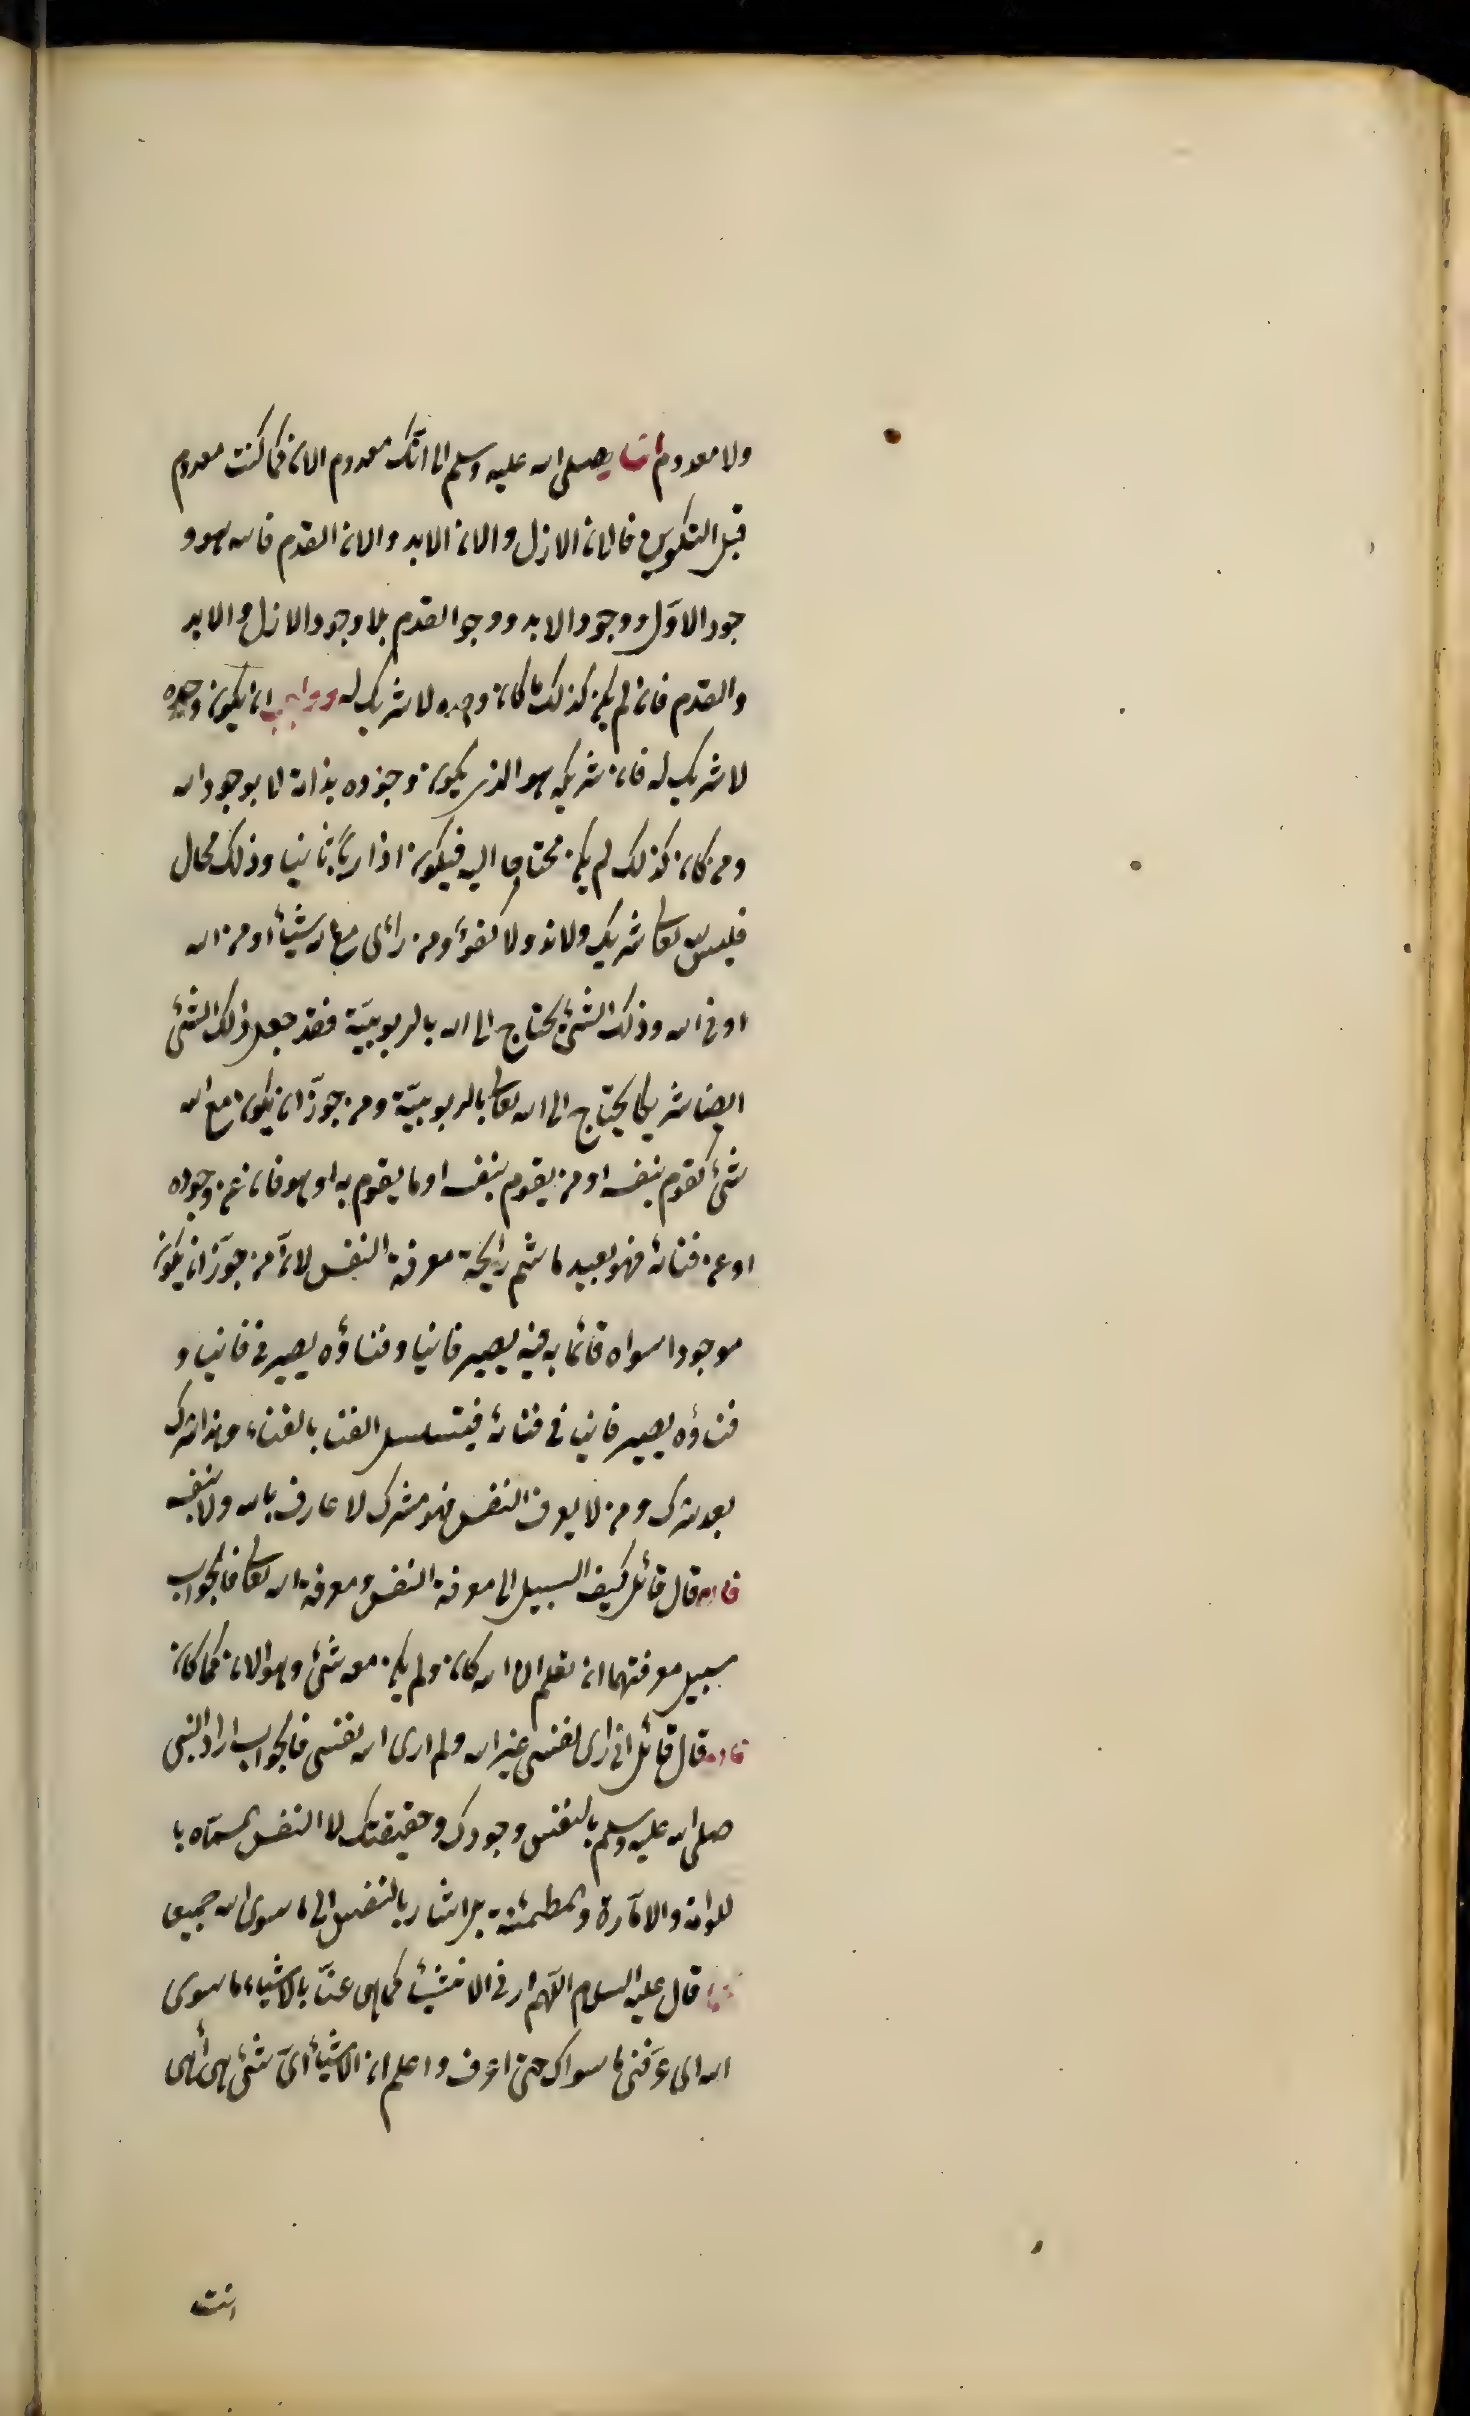 ولا معدوم اشار صلى الله عليه وسلم الى انّك معدوم الان كما كنت معدوم
قبل التكوين فالان الازل والان الابد والان القدم فالله هو و
جود الاوّل ووجود الابد ووجو القدم بلا وجود الازل والابد
والقدم فان لم يكن كذلك ما كان وحده لا شريك له وواجب ان يكون وحده
لا شريك له فان شريكه هو الذى يكون وجوده بذاته لا بوجود الله
ومن كان كذلك لم يكن محتاجا اليه فيكون اذا ربّا ثانيا وذلك محال
فليس لله تعالى شريك ولا ند ولا كفؤ ومن رائ مع الله شيئا او من الله
او فى الله وذلك الشئ يحتاج الى الله بالربوبيّة فقد جعل ذلك الشئ
ايضا شريكا يحتاج الى الله تعالى بالربوبيّة ومن جوّز ان يكون مع الله
شئ يقوم بنفسه او من يقوم بنفسه او ما يقوم به او هو فان عن وجوده
او عن فنائه فهو بعيد ما شم رايحة معرفة النفس لان من جوّز ان يكون
موجودا سواه قائما به فيه يصير فانيا وفناؤه يصير فى فانيا و
فناؤه يصير فانيا فى فنائه فيتسلسل الفنا بالفناء وهذا شرك
بعد شرك ومن لا يعرف النفس فهو مشرك لا عارف بالله ولا بنفسه
فان قال قائل كيف السبيل الى معرفة النفس ومعرفة الله تعالى فالجواب
سبيل معرفتهما ان تعلم ان الله كان ولم يكن معه شئ وهو الان كما كان
فان قال قائل انى ارى نفسى غير الله ولم ارى الله نفسى فالجواب اراد النبى
صلى الله عليه وسلم بالنفس وجودك وحقيقتك لا النفس المسمّاه با
للوامه والامّارة والمطمئنة بل اشار بالنفس الى ما سوى الله جميعا
قال عليه السلام اللّهم ارنى الاشياء كما هى عنّا بالاشياء ما سوى
الله اى عرّفنى ما سواك حتى اعرف واعلم ان الاشياء اىّ شئ هى أهى
انت